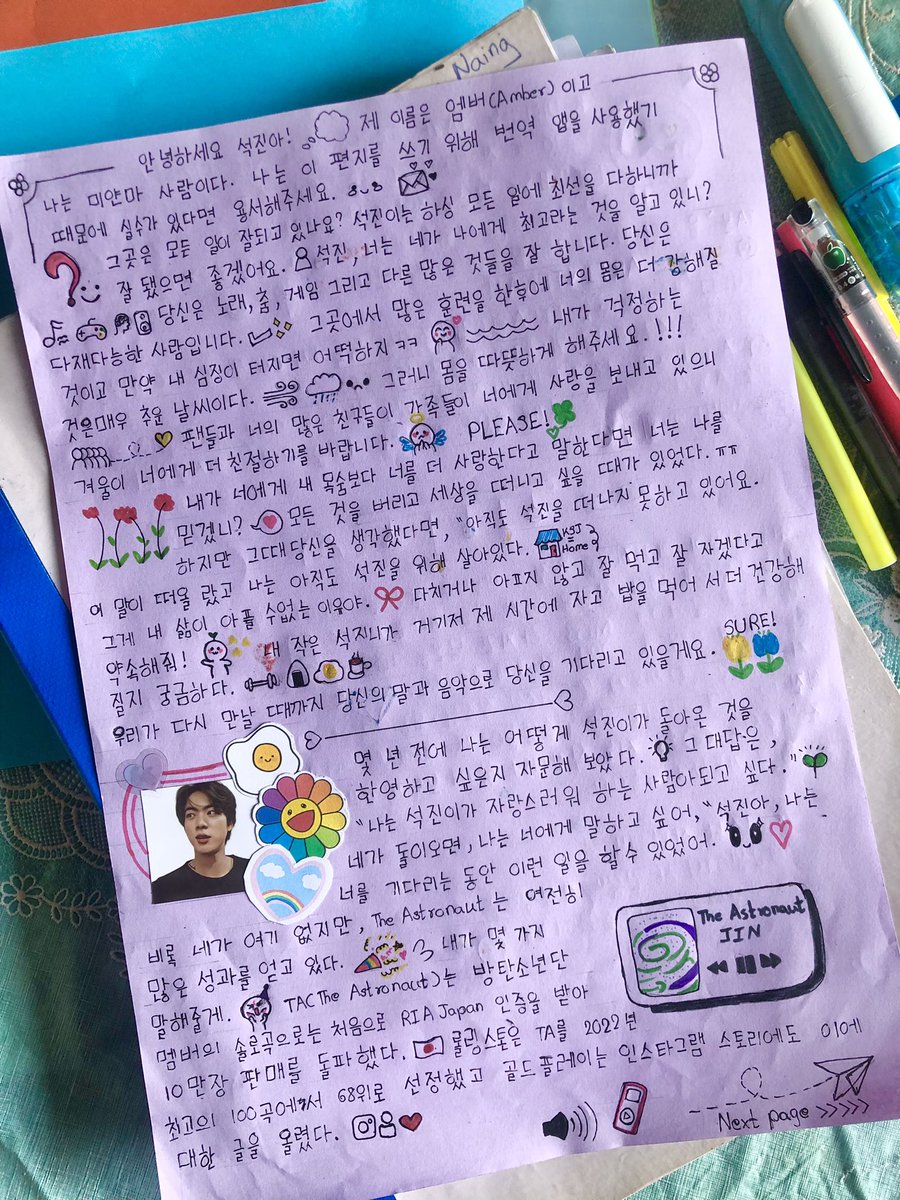 Naing
안녕하세요 석진아! 제 이름은 엠버(Amber)이고
나는 미얀마 사람이다. 나는 이 편지를 쓰기 위해 번역 앱을 사용했기
때문에 실수가 있다면 용서해주세요.
그곳은 모든 일이 잘되고 있나요? 석진이는 하싱 모든 일에 최선을 다하니까
잘 됐으면 좋겠어요. 석진, 너는 네가 나에게 최고라는 것을 알고 있니?
당신은 노래, 춤, 게임 그리고 다른 많은 것들을 잘 합니다. 당신은
다재다능한 사람입니다. 그곳에서 많은 훈련을 한후에 너의 몸은 더 강해질
것이고 만약 내 심장이 터지면 어떡하지 ㅋㅋ 내가 걱정하는
것은매우 추운 날씨이다. 그러니 몸을 따뜻하게 해주세요.!!!
팬들과 너의 많은 친구들이 가족들이 너에게 사랑을 보내고 있으니
겨울이 너에게 더 친절하기를 바랍니다. PLEASE!
내가 너에게 내 목숨보다 너를 더 사랑한다고 말한다면 너는 나를
믿겠니? 모든 것을 버리고 세상을 떠니고 싶을 때가 있었다.ㅠㅠ
하지만 그때당신을 생각했다면, "아직도 석진을 떠나지 못하고 있어요.
이 말이 떠올랐고 나는 아직도 석진을 위해 살아있다. KSJ = Home
그게 내 삶이 아플 수없는 이유야. 다치거나 아프지 않고 잘 먹고 잘 자겠다고
약속해줘! 내 작은 석지니가 거기저 제 시간에 자고 밥을 먹어 서 더 건강해
질지 궁금하다. SURE!
우리가 다시 만날 때까지 당신의 말과 음악으로 당신을 기다리고 있을게요.
몇 년 전에 나는 어떻게 석진이가 돌아온 것을
환영하고 싶은지 자문해 보았다. 그 대답은,
"나는 석진이가 자랑스러워 하는 사람아되고 싶다."
네가 돌이오면, 나는 너에게 말하고 싶어, "석진아, 나는
너를 기다리는 동안 이런 일을 할수 있었어.
비록 네가 여기 없지만, The Astronaut 는 여전히
많은 성과를 얻고 있다. 내가 몇 가지
말해줄게. TAC The Astronaut)는 방탄소년단
멤버의 솔로곡으로는 처음으로 RIA Japan 인증을 받아
10만장 판매를 돌파했다. 롤링스톤은 TA를 2022년
최고의 100곡에서 68위로 선정했고 골드플레이는 인스타그램 스토리에도 이에
대한 글을 올렸다.
The Astronaut
JIN
Next page >>>>>